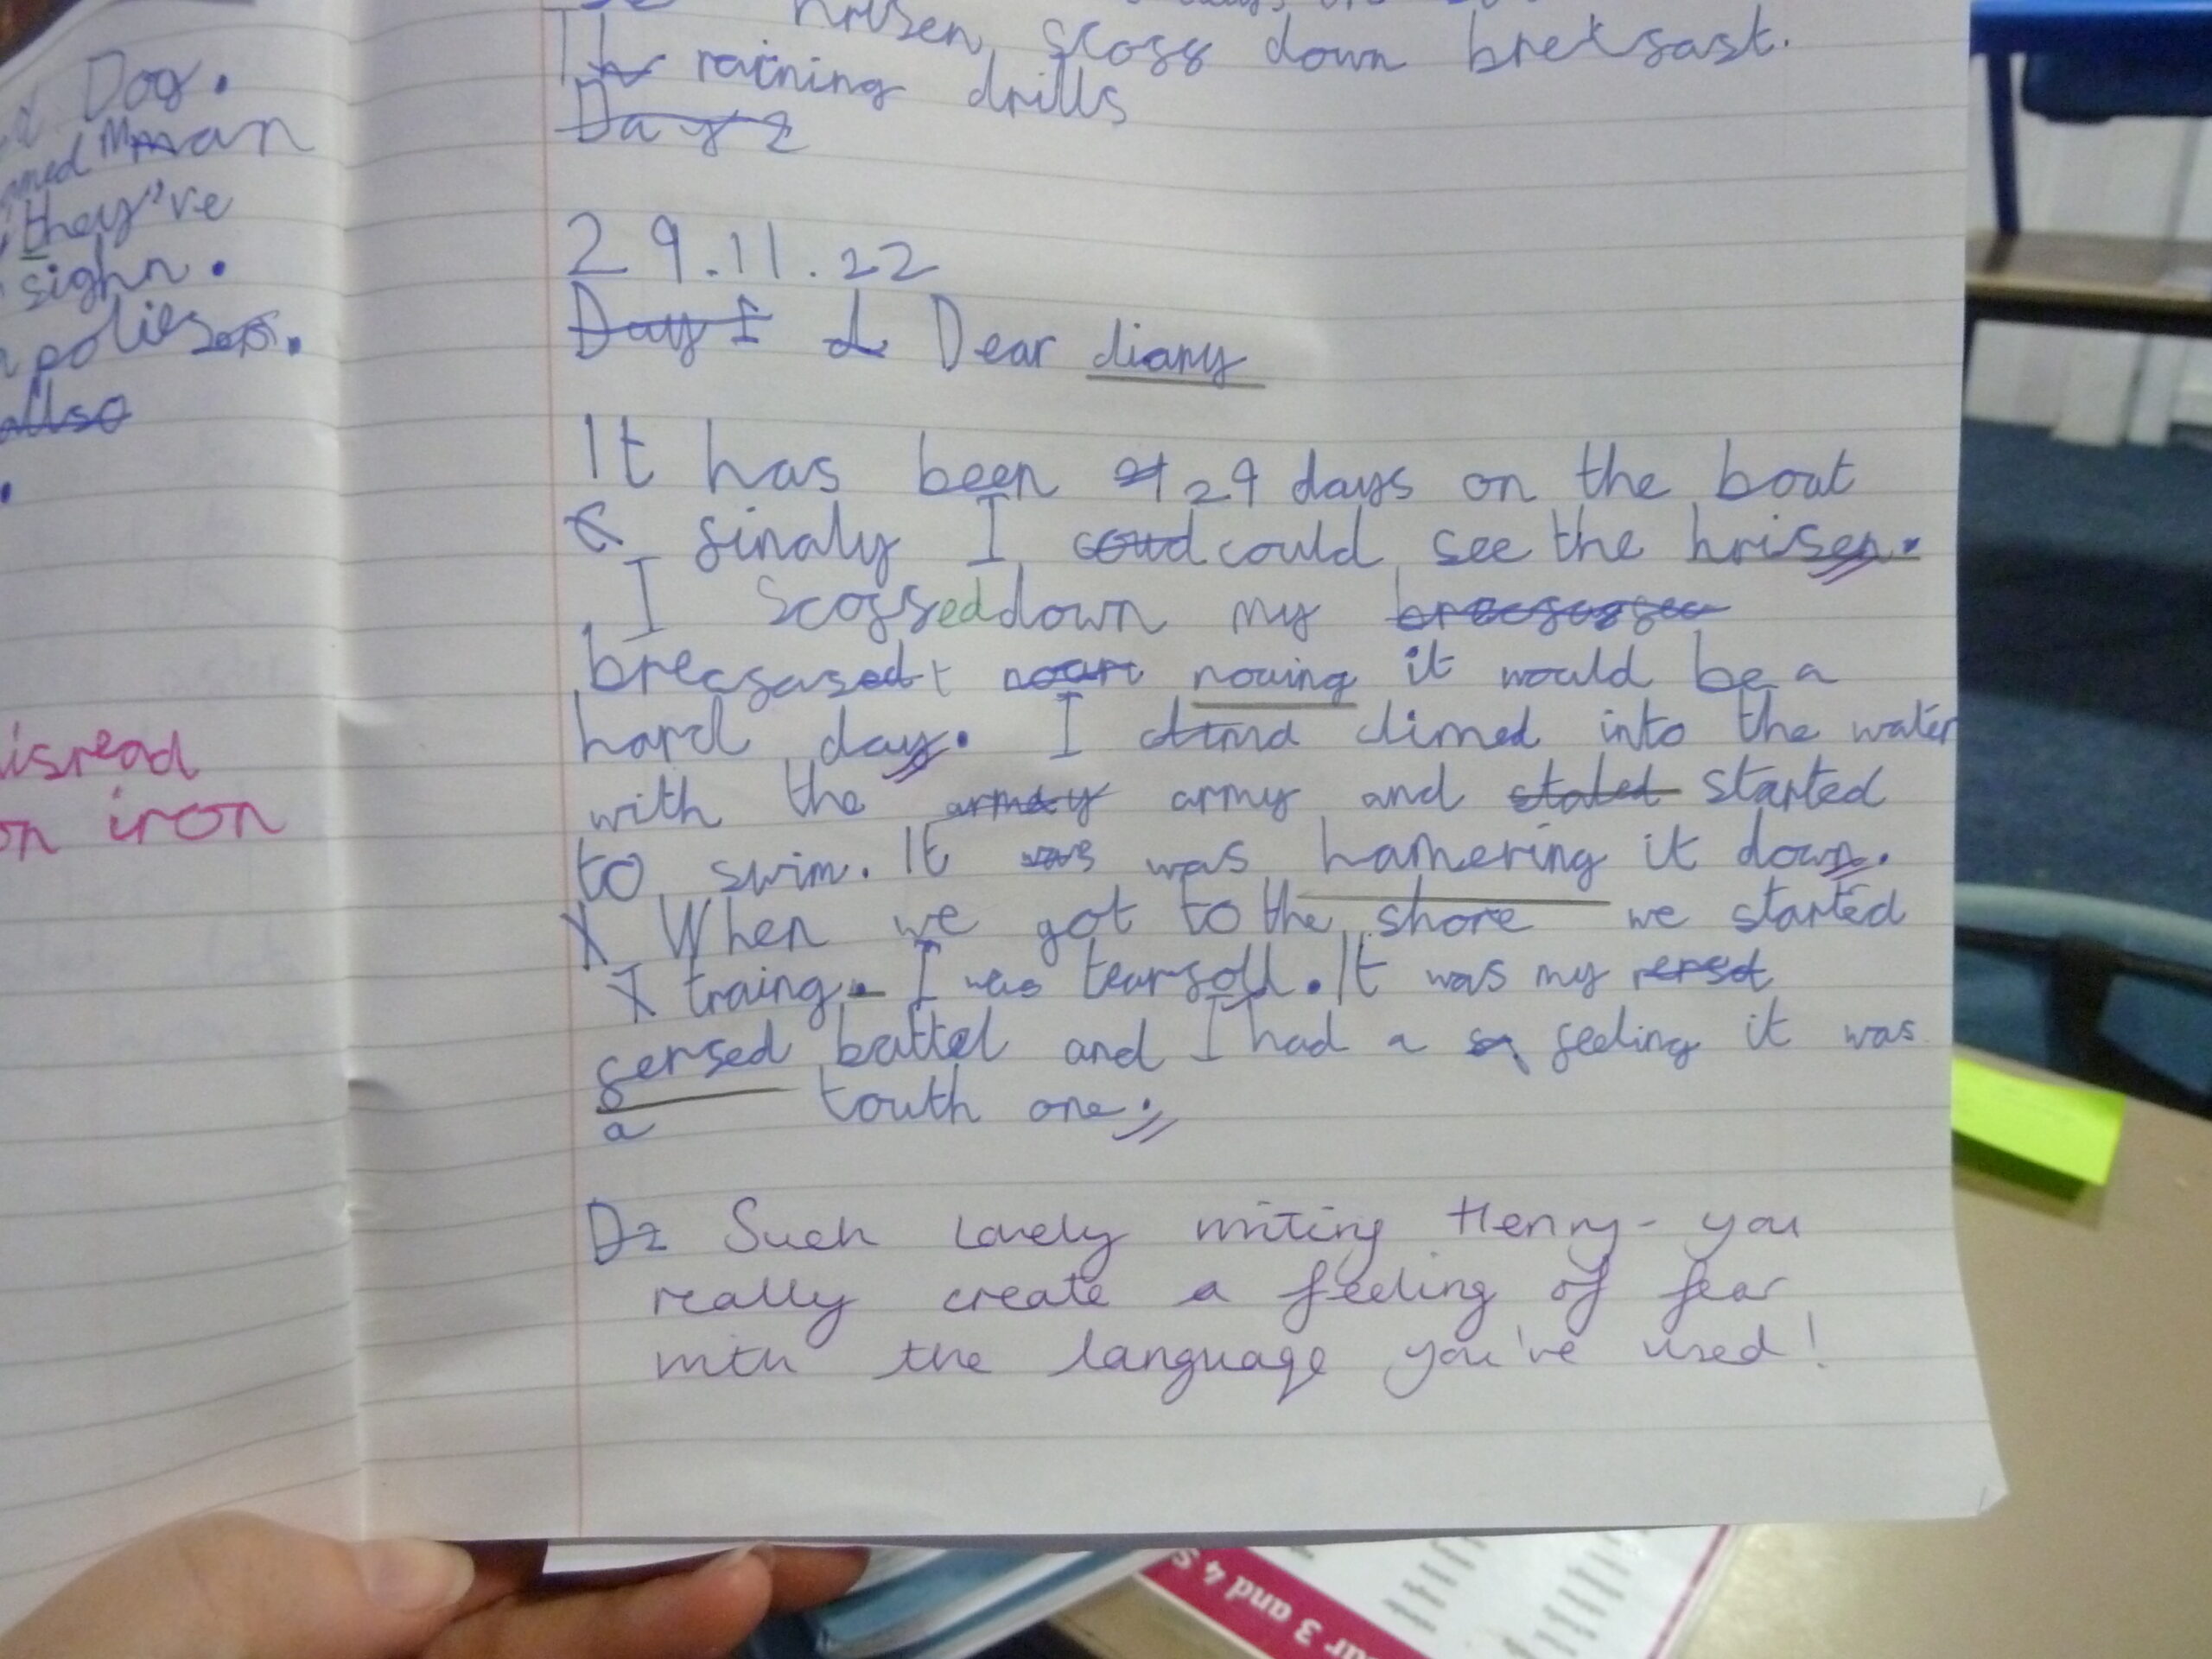 d Dog.
man
they've
sighn.
polies
allso
isread
on iron
hrisen scoff down brekfast.
The raining drills
Day 2
29.11.22
Day 1 d Dear diary
It has been 29 days on the boat
finaly I could see the hrisen.
I Scoffed down my
brecfast nowing it would be a
hard day. I climed into the water
with the army and stated started
to swim. It was was hamering it down.
X When we got to the shore we started
I traing. I was tearfoll. It was my
fersed battel and I had a feeling it was
a touth one.
D2 Such lovely writing Henry - you
really create a feeling of fear
with the language you've used!
ear 3 and 4 S